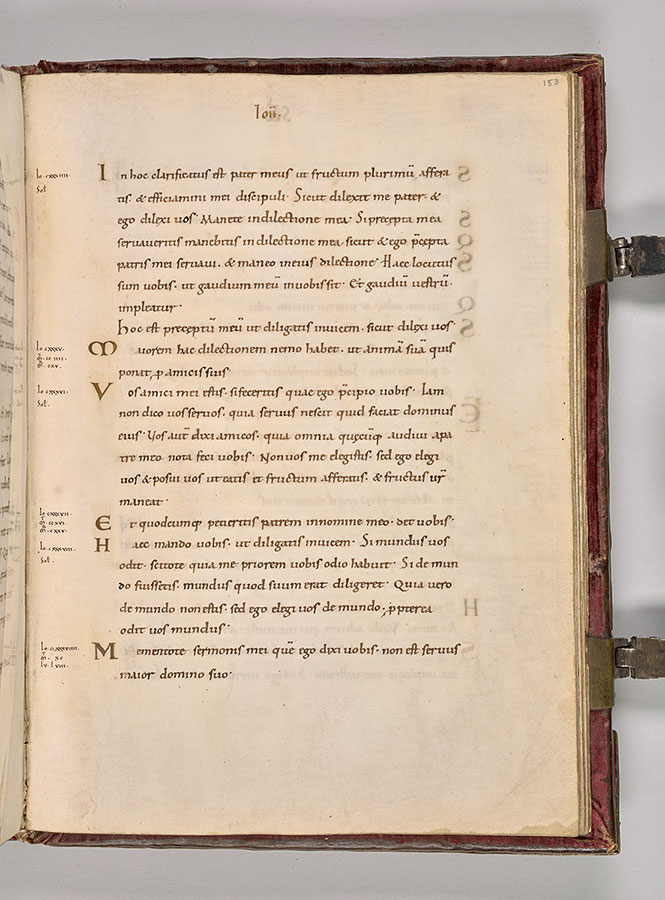 153
Ioh̄.
In hoc clarificatus est pater meus ut fructum plurimū affera
tis. & efficiamini mei discipuli. Sicut dilexit me pater. &
ego dilexi uos. Manete indilectione mea. Si precepta mea
seruaueritis manebitis in dilectione mea. sicut & ego p̄cepta
patris mei seruaui. & maneo ineius dilectione. Haec locutus
sum uobis. ut gaudium meū inuobis sit. Et gaudiū uestrū.
impleatur.
hoc est preceptū meū ut diligatis inuicem. sicut dilexi uos.
Maiorem hac dilectionem nemo habet. ut animā suā quis
ponat p amicis suis.
Vos amici mei estis. si feceritis quae ego p̄cipio uobis. Iam
non dico uos seruos. quia seruus nescit quid faciat dominus
eius. Vos aut̄ dixi amicos. quia omnia quecūq; audiui apa
tre meo. nota feci uobis. Non uos me elegistis. sed ego elegi
uos & posui uos ut eatis et fructum afferatis. & fructus ur̄
maneat.
Et quodcumq; petieritis patrem innomine meo. det uobis.
Haec mando uobis. ut diligatis inuicem. Si mundus uos
odit. scitote quia me priorem uobis odio habuit. Si de mun
do fuissetis. mundus quod suum erat diligeret. Quia uero
de mundo non estis. sed ego elegi uos de mundo. ppterea
odit uos mundus.
Mementote sermonis mei quē ego dixi uobis. non est seruus
maior domino suo.
Io. cxxxiiii.
Sol.
Io. cxxxv.
Io. cxxxvi.
Sol.
Io. cxxxvii.
Io. cxxxviii.
Sol.
Io. cxxxviiii.